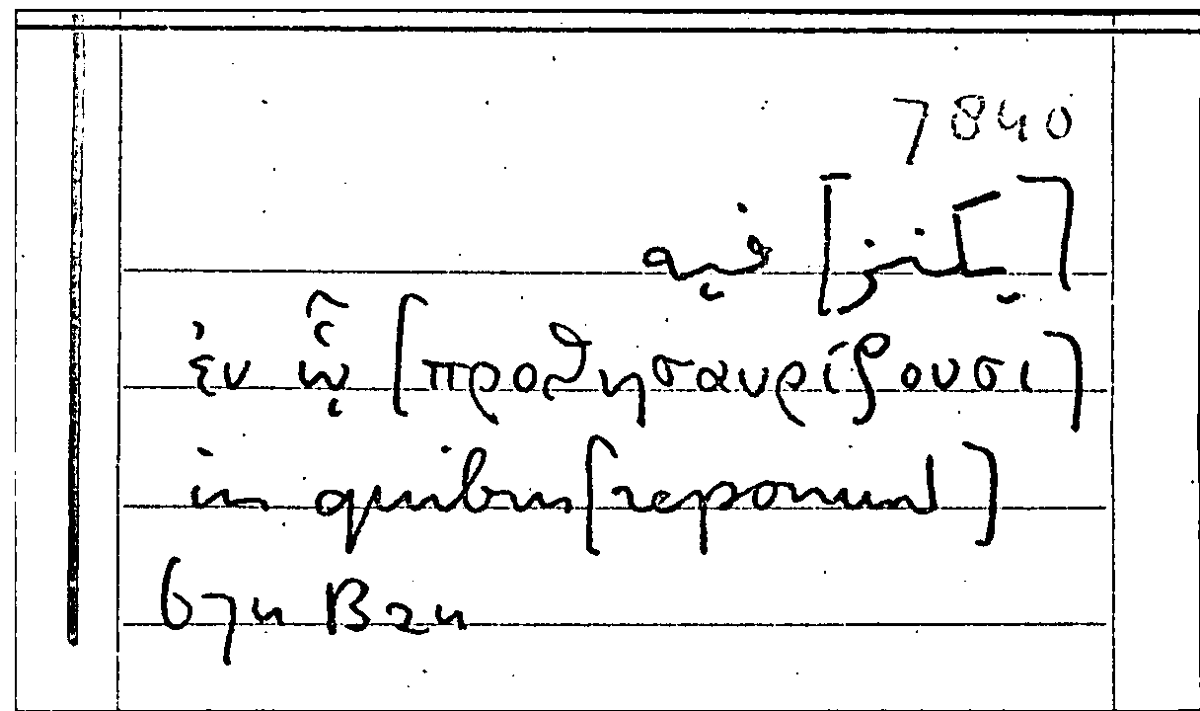 7840
[يكنز] فيه
ἐν ᾧ [προθησαυρίζουσι]
in quibus [reponunt]
674 B 24